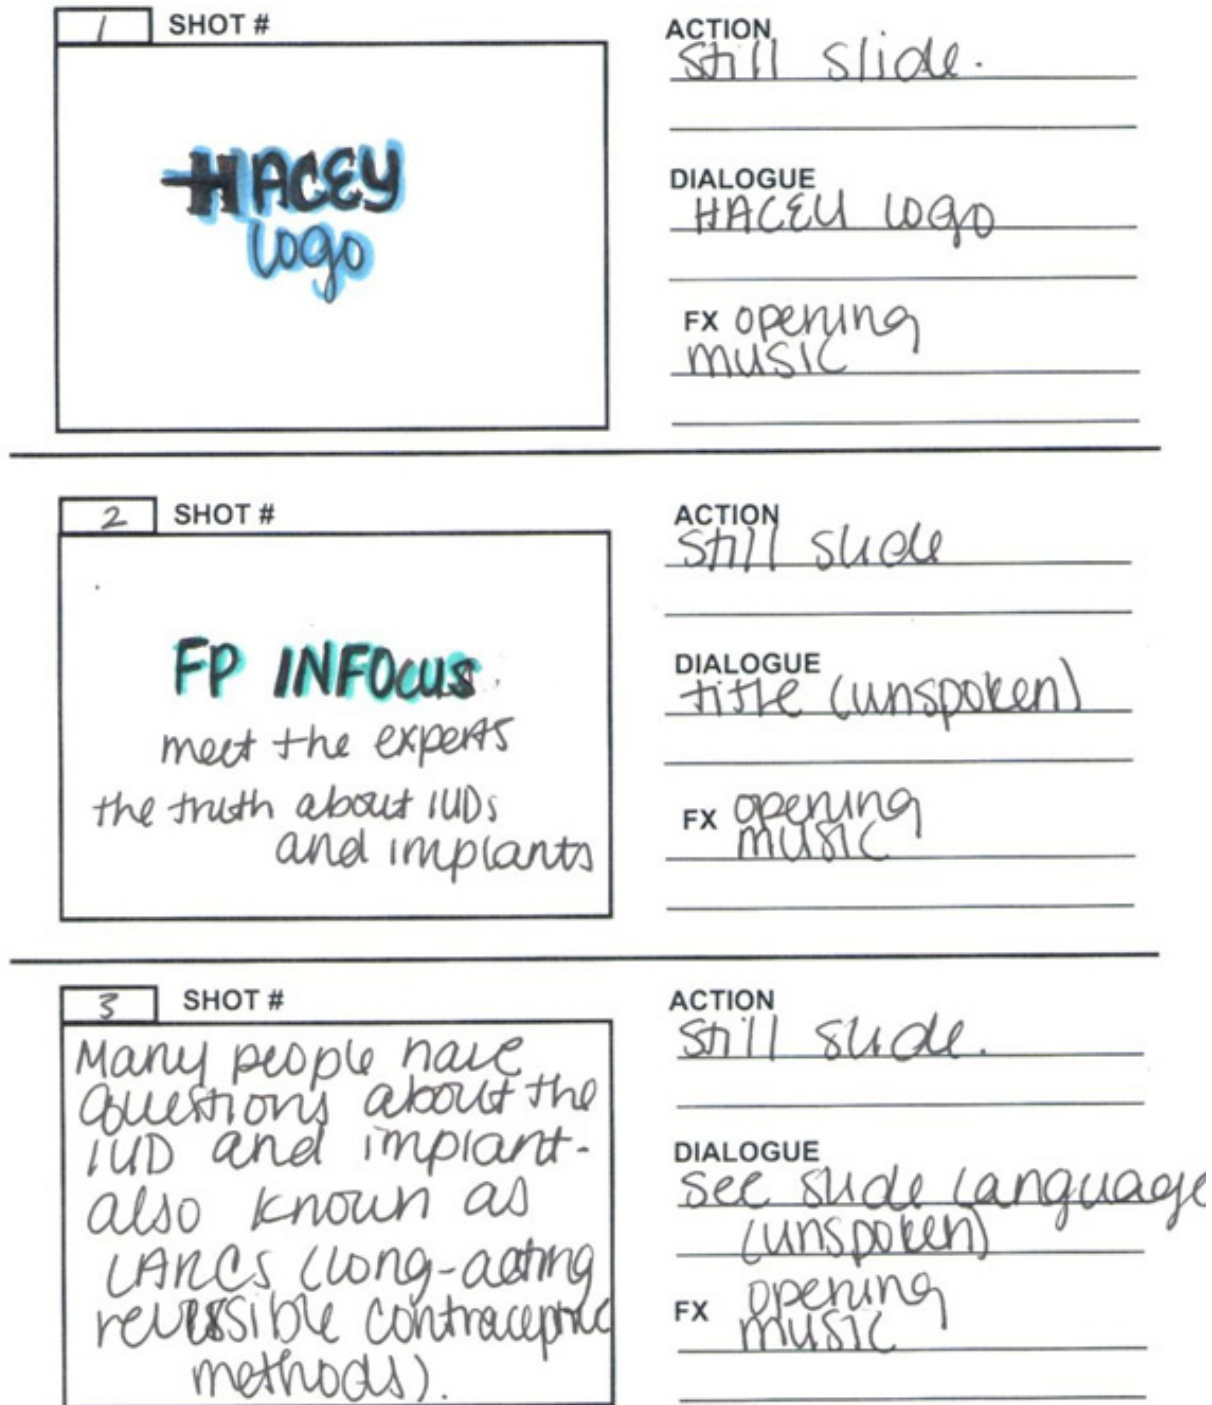 1 SHOT #
HACEY
logo
ACTION
still slide.
DIALOGUE
HACEY logo
FX opening
music
2 SHOT #
FP INFOcus
meet the experts
the truth about IUDs
and implants
ACTION
still slide
DIALOGUE
title (unspoken)
FX opening
music
3 SHOT #
Many people have
questions about the
IUD and implant-
also known as
LARCs (long-acting
reversible contraceptive
methods).
ACTION
still slide.
DIALOGUE
see slide language
(unspoken)
FX opening
music